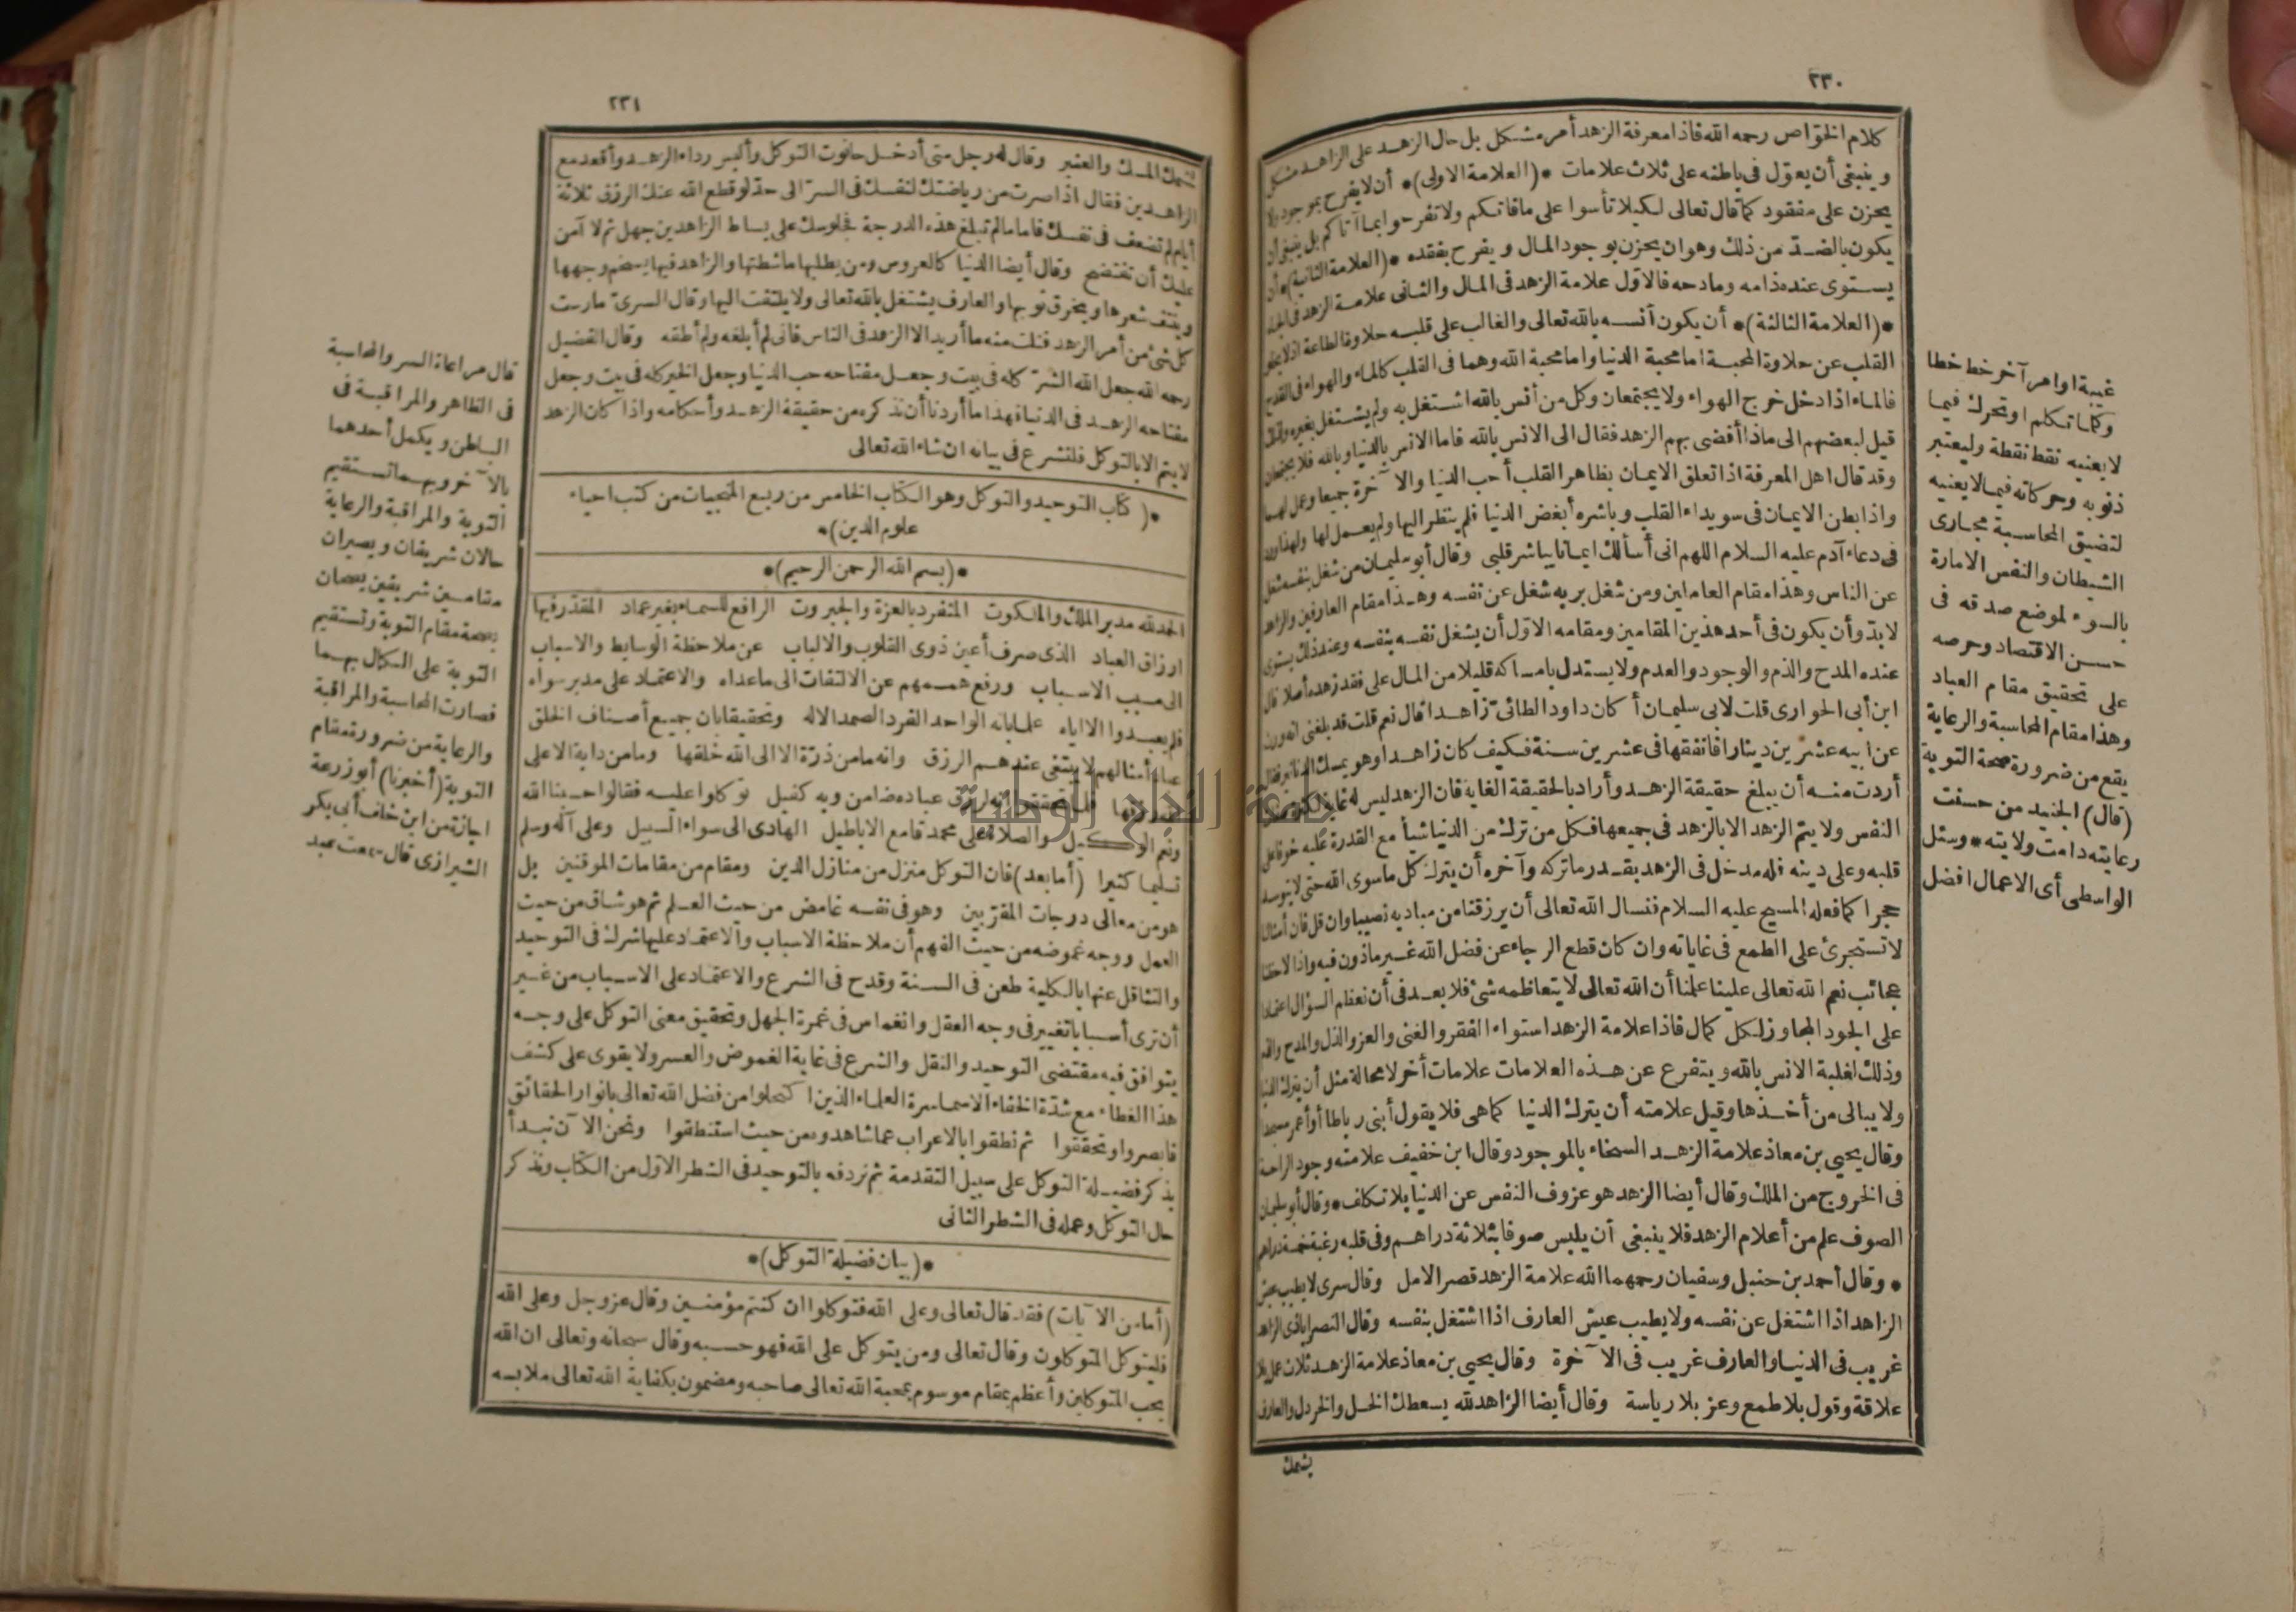 ٢٣٠
كلام الخواص رحمه الله فاذا معرفة الزهد أمر مشكل بل حال الزهد على الزاهد مشكل
وينبغي أن يعوّل في باطنه على ثلاث علامات * (العلامة الاولى) * أن لا يفرح بموجود ولا
يحزن على مفقود كما قال تعالى لكيلا تأسوا على ما فاتكم ولا تفرحوا بما آتاكم بل ينبغي أن
يكون بالضدّ من ذلك وهو ان يحزن بوجود المال ويفرح بفقده * (العلامة الثانية) * أن
يستوى عنده ذامه ومادحه فالاوّل علامة الزهد في المال والثاني علامة الزهد في الجاه
* (العلامة الثالثة) * أن يكون أنسه بالله تعالى والغالب على قلبه حلاوة الطاعة اذ لا يخلو
القلب عن حلاوة المحبة اما محبة الدنيا واما محبة الله وهما في القلب كالماء والهواء في القدح
فالماء اذا دخل خرج الهواء ولا يجتمعان وكل من أنس بالله اشتغل به ولم يشتغل بغيره ولذلك
قيل لبعضهم الى ماذا أفضى بهم الزهد فقال الى الانس بالله فاما الانس بالدنيا وبالله فلا يجتمعان
وقد قال اهل المعرفة اذا تعلق الايمان بظاهر القلب أحب الدنيا والآخرة جميعا وعمل لهما
واذا بطن الايمان في سويداء القلب وباشره أبغض الدنيا فلم ينظر اليها ولم يعمل لها ولهذا ورد
في دعاء آدم عليه السلام اللهم انى أسألك ايمانا يباشر قلبي وقال أبو سليمان من شغل بنفسه شغل
عن الناس وهذا مقام العاملين ومن شغل بربه شغل عن نفسه وهذا مقام العارفين والزاهد
لا بدّ وأن يكون في أحد هذين المقامين ومقامه الاوّل أن يشغل نفسه بنفسه وعند ذلك يستوى
عنده المدح والذم والوجود والعدم ولا يستدل بامساكه قليلا من المال على فقد زهده أصلا قال
ابن أبى الحوارى قلت لابى سليمان أكان داود الطائىّ زاهدا قال نعم قلت قد بلغنى انه ورث
عن ابيه عشرين دينارا فانفقها في عشرين سنة فكيف كان زاهدا وهو يمسك الدنانير فقال
أردت منه أن يبلغ حقيقة الزهد وأراد بالحقيقة الغاية فان الزهد ليس له غاية لكثرة صفات
النفس ولا يتم الزهد الا بالزهد في جميعها فكل من ترك من الدنيا شيأ مع القدرة عليه خوفا على
قلبه وعلى دينه فله مدخل في الزهد بقدر ما تركه وآخره أن يترك كل ما سوى الله حتى لا يتوسد
حجرا كما فعله المسيح عليه السلام فنسال الله تعالى أن يرزقنا من مباديه نصيبا وان قل فان أمثالنا
لا تستجرئ على الطمع في غاياته وان كان قطع الرجاء عن فضل الله غير ماذون فيه واذا لاحظنا
عجائب نعم الله تعالى علينا علمنا أن الله تعالى لا يتعاظمه شئ فلا بعد في أن نعظم السؤال اعتمادا
على الجود المجاوز لكل كمال فاذا علامة الزهد استواء الفقر والغنى والعز والذل والمدح والذم
وذلك لغلبة الانس بالله ويتفرع عن هذه العلامات علامات أخر لا محالة مثل أن يترك الدنيا
ولا يبالى من أخذها وقيل علامته أن يترك الدنيا كما هى فلا يقول أبنى رباطا أو أعمر مسجدا
وقال يحيي بن معاذ علامة الزهد السخاء بالموجود وقال ابن خفيف علامته وجود الراحة
في الخروج من الملك وقال أيضا الزهد هو عزوف النفس عن الدنيا بلا تكلف * وقال أبو سليمان
الصوف علم من أعلام الزهد فلا ينبغى أن يلبس صوفا بثلاثة دراهم وفي قلبه رغبة خمسة دراهم
* وقال أحمد بن حنبل وسفيان رحمهما الله علامة الزهد قصر الامل وقال سرى لا يطيب عيش
الزاهد اذا اشتغل عن نفسه ولا يطيب عيش العارف اذا اشتغل بنفسه وقال النصراباذى الزاهد
غريب في الدنيا والعارف غريب في الآخرة وقال يحيي بن معاذ علامة الزهد ثلاث عمل بلا
علاقة وقول بلا طمع وعز بلا رياسة وقال أيضا الزاهد لله يسعطك الخل والخردل والعارف
يشمك
غيبة او امر آخر خط خطا
وكلما تكلم او تحرك فيما
لا يعنيه نقط نقطة وليعتبر
ذنوبه وحركاته فيما لا يعنيه
لتضيق المحاسبة مجارى
الشيطان والنفس الامارة
بالسوء لموضع صدقه في
حسن الاقتصاد وحرصه
على تحقيق مقام العباد
وهذا مقام المحاسبة والرعاية
يقع من ضرورة صحة التوبة
(قال) الجنيد من حسنت
رعايته دامت ولايته * وسئل
الواسطى أى الاعمال افضل
٢٣١
يشمك المسك والعنبر وقال له رجل متى أدخل حانوت التوكل وألبس رداء الزهد وأقعد مع
الزاهدين فقال اذا صرت من رياضتك لنفسك في السرّ الى حدّ لو قطع الله عنك الرزق ثلاثة
أيام لم تضعف في نفسك فاما ما لم تبلغ هذه الدرجة فجلوسك على بساط الزاهدين جهل ثم لا آمن
عليك أن تفتضح وقال أيضا الدنيا كالعروس ومن يطلبها ماشطتها والزاهد فيها يسخم وجهها
وينتف شعرها ويخرق ثوبها والعارف يشتغل بالله تعالى ولا يلتفت اليها وقال السرىّ مارست
كل شئ من أمر الزهد فنلت منه ما أريد الا الزهد في الناس فانى لم أبلغه ولم أطقه وقال الفضيل
رحمه الله جعل الله الشرّ كله في بيت وجعل مفتاحه حب الدنيا وجعل الخير كله في بيت وجعل
مفتاحه الزهد في الدنيا فهذا ما أردنا أن نذكره من حقيقة الزهد وأحكامه واذا كان الزهد
لا يتم الا بالتوكل فلنشرع في بيانه ان شاء الله تعالى
* (كتاب التوحيد والتوكل وهو الكتاب الخامس من ربع المنجيات من كتب احياء
علوم الدين) *
* (بسم الله الرحمن الرحيم) *
الحمد لله مدبر الملك والملكوت المنفرد بالعزة والجبروت الرافع للسماء بغير عماد المقدّر فيها
ارزاق العباد الذى صرف أعين ذوى القلوب والالباب عن ملاحظة الوسايط والاسباب
الى مسبب الاسباب ورفع هممهم عن الالتفات الى ما عداه والاعتماد على مدبر سواه
فلم يعبدوا الا اياه علما بانه الواحد الفرد الصمد الاله وتحقيقا بان جميع أصناف الخلق
عباد أمثالهم لا يبتغى عندهم الرزق وانه ما من ذرّة الا الى الله خلقها وما من دابة الا على
الله رزقها فلما تحققوا انه لرزق عباده ضامن وبه كفيل توكلوا عليه فقالوا حسبنا الله
ونعم الوكيل والصلاة على محمد قامع الاباطيل الهادى الى سواء السبيل وعلى آله وسلم
تسليما كثيرا (أما بعد) فان التوكل منزل من منازل الدين ومقام من مقامات الموقنين بل
هو من معالى درجات المقرّبين وهو في نفسه غامض من حيث العلم ثم هو شاق من حيث
العمل ووجه غموضه من حيث الفهم أن ملاحظة الاسباب والاعتماد عليها شرك في التوحيد
والتثاقل عنها بالكلية طعن في السنة وقدح في الشرع والاعتماد على الاسباب من غير
أن ترى أسبابا تغيير في وجه العقل وانغماس في غمرة الجهل وتحقيق معنى التوكل على وجه
يتوافق فيه مقتضى التوحيد والنقل والشرع في غاية الغموض والعسر ولا يقوى على كشف
هذا الغطاء مع شدّة الخفاء الا سماسرة العلماء الذين اكتحلوا من فضل الله تعالى بانوار الحقائق
فابصروا وتحققوا ثم نطقوا بالاعراب عما شاهدوه من حيث استنطقوا ونحن الآن نبدأ
بذكر فضيلة التوكل على سبيل التقدمة ثم نردفه بالتوحيد في الشطر الاوّل من الكتاب ونذكر
حال التوكل وعمله في الشطر الثانى
* (بيان فضيلة التوكل) *
(أما من الآيات) فقد قال تعالى وعلى الله فتوكلوا ان كنتم مؤمنين وقال عز وجل وعلى الله
فليتوكل المتوكلون وقال تعالى ومن يتوكل على الله فهو حسبه وقال سبحانه وتعالى ان الله
يحب المتوكلين وأعظم بمقام موسوم بمحبة الله تعالى صاحبه ومضمون بكفاية الله تعالى ملابسه
قال مراعاة السر والمحاسبة
في الظاهر والمراقبة في
الباطن ويكمل أحدهما
بالآخر وبهما تستقيم
التوبة والمراقبة والرعاية
حالان شريفان ويصيران
مقامين شريفين يصحان
بصحة مقام التوبة وتستقيم
التوبة على الكمال بهما
فصارت المحاسبة والمراقبة
والرعاية من ضرورة مقام
التوبة (أخبرنا) أبو زرعة
اجازة من ابن خلف أبي بكر
الشيرازى قال سمعت محمد
جامعة النجاح الوطنية